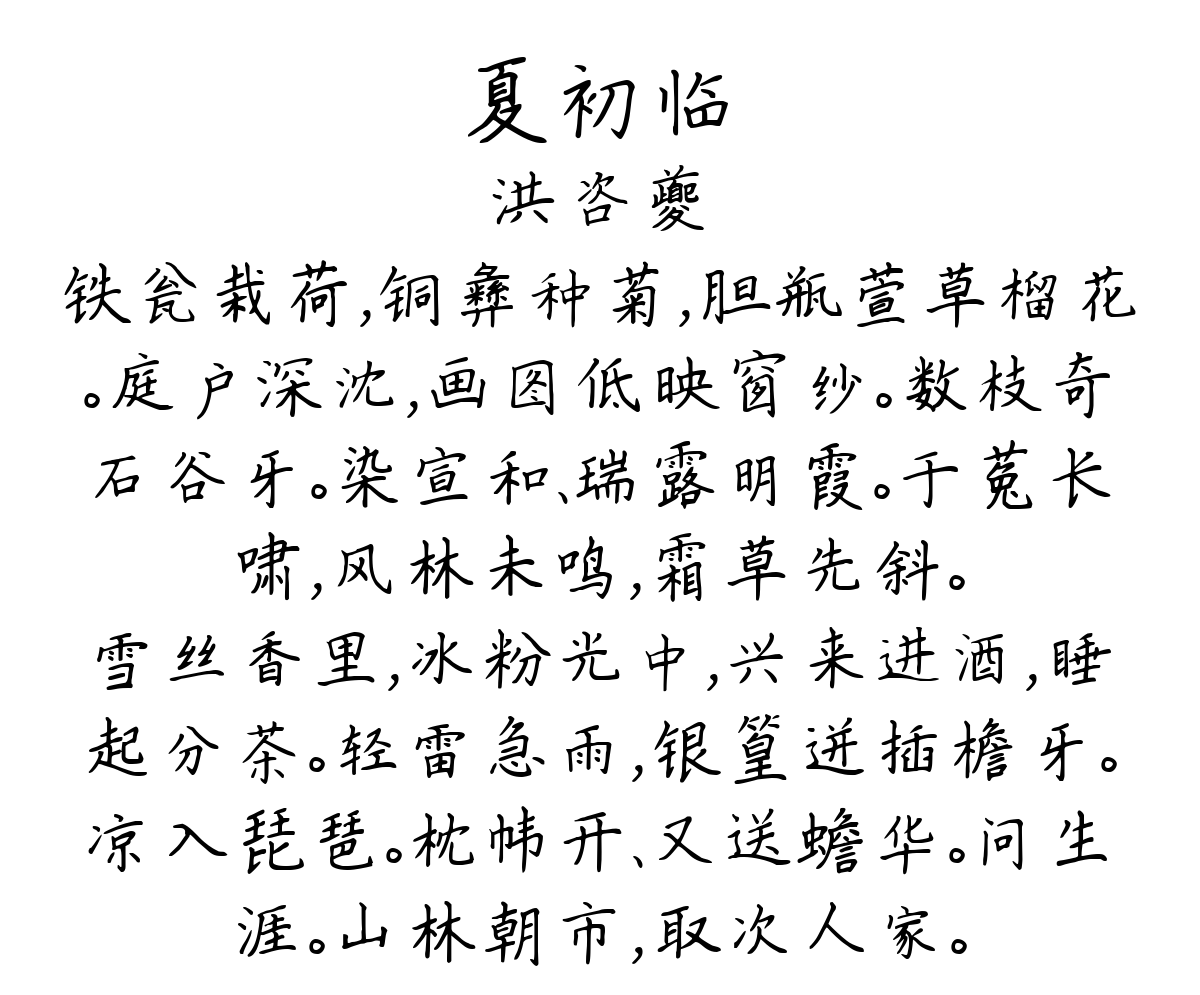 夏初临
洪咨夔
铁瓮栽荷,铜彝种菊,胆瓶萱草榴花
。庭户深沈,画图低映窗纱。数枝奇
石谷牙。染宣和、瑞露明霞。于菟长
啸,风林未鸣,霜草先斜。
雪丝香里,冰粉光中,兴来进酒,睡
起分茶。轻雷急雨,银篁迸插檐牙。
凉入琵琶。枕帏开、又送蟾华。问生
涯。山林朝市,取次人家。